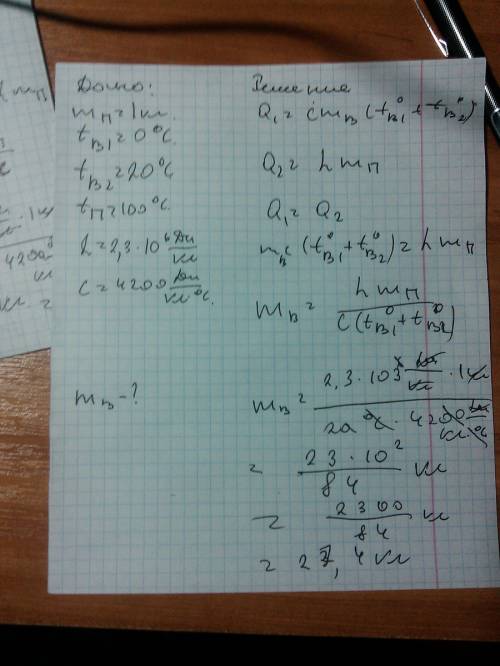 Дано:
m_п = 1 кг.
t_в1 = 0°C.
t_в2 = 20°C
t_п = 100°C.
L = 2,3 · 10^6 Дж/кг
c = 4200 Дж/кг °C.
m_в - ?
Решение
Q_1 = c m_в (t°_в1 + t°_в2)
Q_2 = L m_п
Q_1 = Q_2
m_в c (t°_в1 + t°_в2) = L m_п
m_в = L m_п / C (t°_в1 + t°_в2)
m_в = 2,3 · 10 Дж/кг · 1 кг / 20 °C · 4200 Дж/кг · °C
= 23 · 10^2 / 84 кг
= 2300 / 84 кг
= 27,4 кг